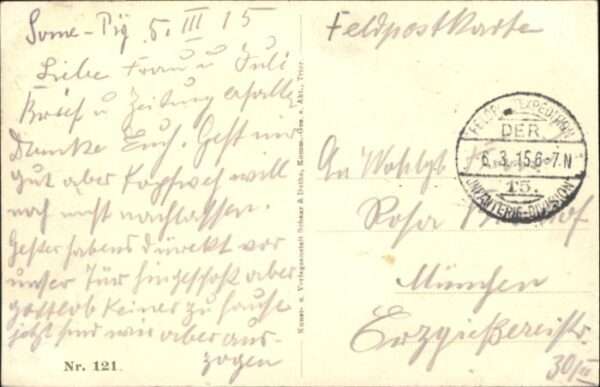 Some-Pÿ 5. III 15
Liebe Frau u Juli
Brief u Zeitung erhalten
Danke Euch. Geht mir
gut aber Kopfweh will
noch nicht nachlassen.
Gestern habens direkt vor
unser Tür hingeschoßt aber
gottlob keiner zu hause
jetzt sind wir aber aus-
zogen
Nr. 121
Kunst- u. Verlagsanstalt Schaar & Dathe, Komm.-Ges. a. Akt., Trier.
Feldpostkarte
FELDP. EXPEDITION
DER
6.3.15 6-7N
15.
INFANTERIE-DIVISION
An Wohlgb
Rosa
München
Erzgießereistr.
30/III